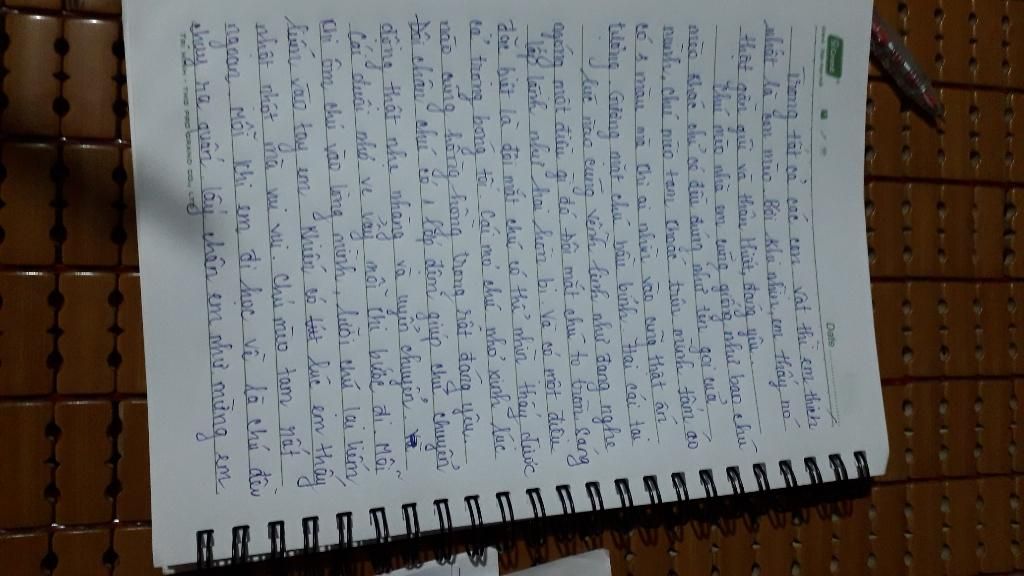 Date
Trong tất cả các con vật thì em thích
nhất là con mèo. Bởi khi nhìn, em thấy nó
thật gần gũi và thân thiết, đáng yêu.
Chú mèo nhà em cũng giống như bao chú
mèo khác chỉ có điều đúng như tên gọi của
mình, chú mèo tam thoác trên mình tấm áo
có 3 màu mà chỉ ai nhìn vào cũng thật ấn
tượng. Giống một chú bầu bĩnh. Hai cái tai
lúc nào cũng vểnh lênh như đang nghe
ngóng một điều gì đó. Đôi mắt chú to tròn sáng
lấp lánh như hai hòn bi và có một điều
đặc biệt là đôi mắt chú có thể nhìn thấy được
cả trong bóng tối. Cái mũ chú nhỏ xinh lúc
nào cũng hồng hồng trông rất đáng yêu.
Dôi chân chú có 1 lớp đệm giúp chú chuyển
động thật nhẹ nhàng và uyển chuyển
Cái đuôi nhỏ ve vẩy mỗi khi bước đi. Mỗi
khi ôm chú vào lòng mình, lưỡi chú lại liếm
liếm vào tay em khiến có lúc em thấy
nhột nhột mà vui vui. Chú mèo tam rất
ngoan. Mỗi khi em đi học về là chú đều
chạy ra quấn lấy chân em như mừng em